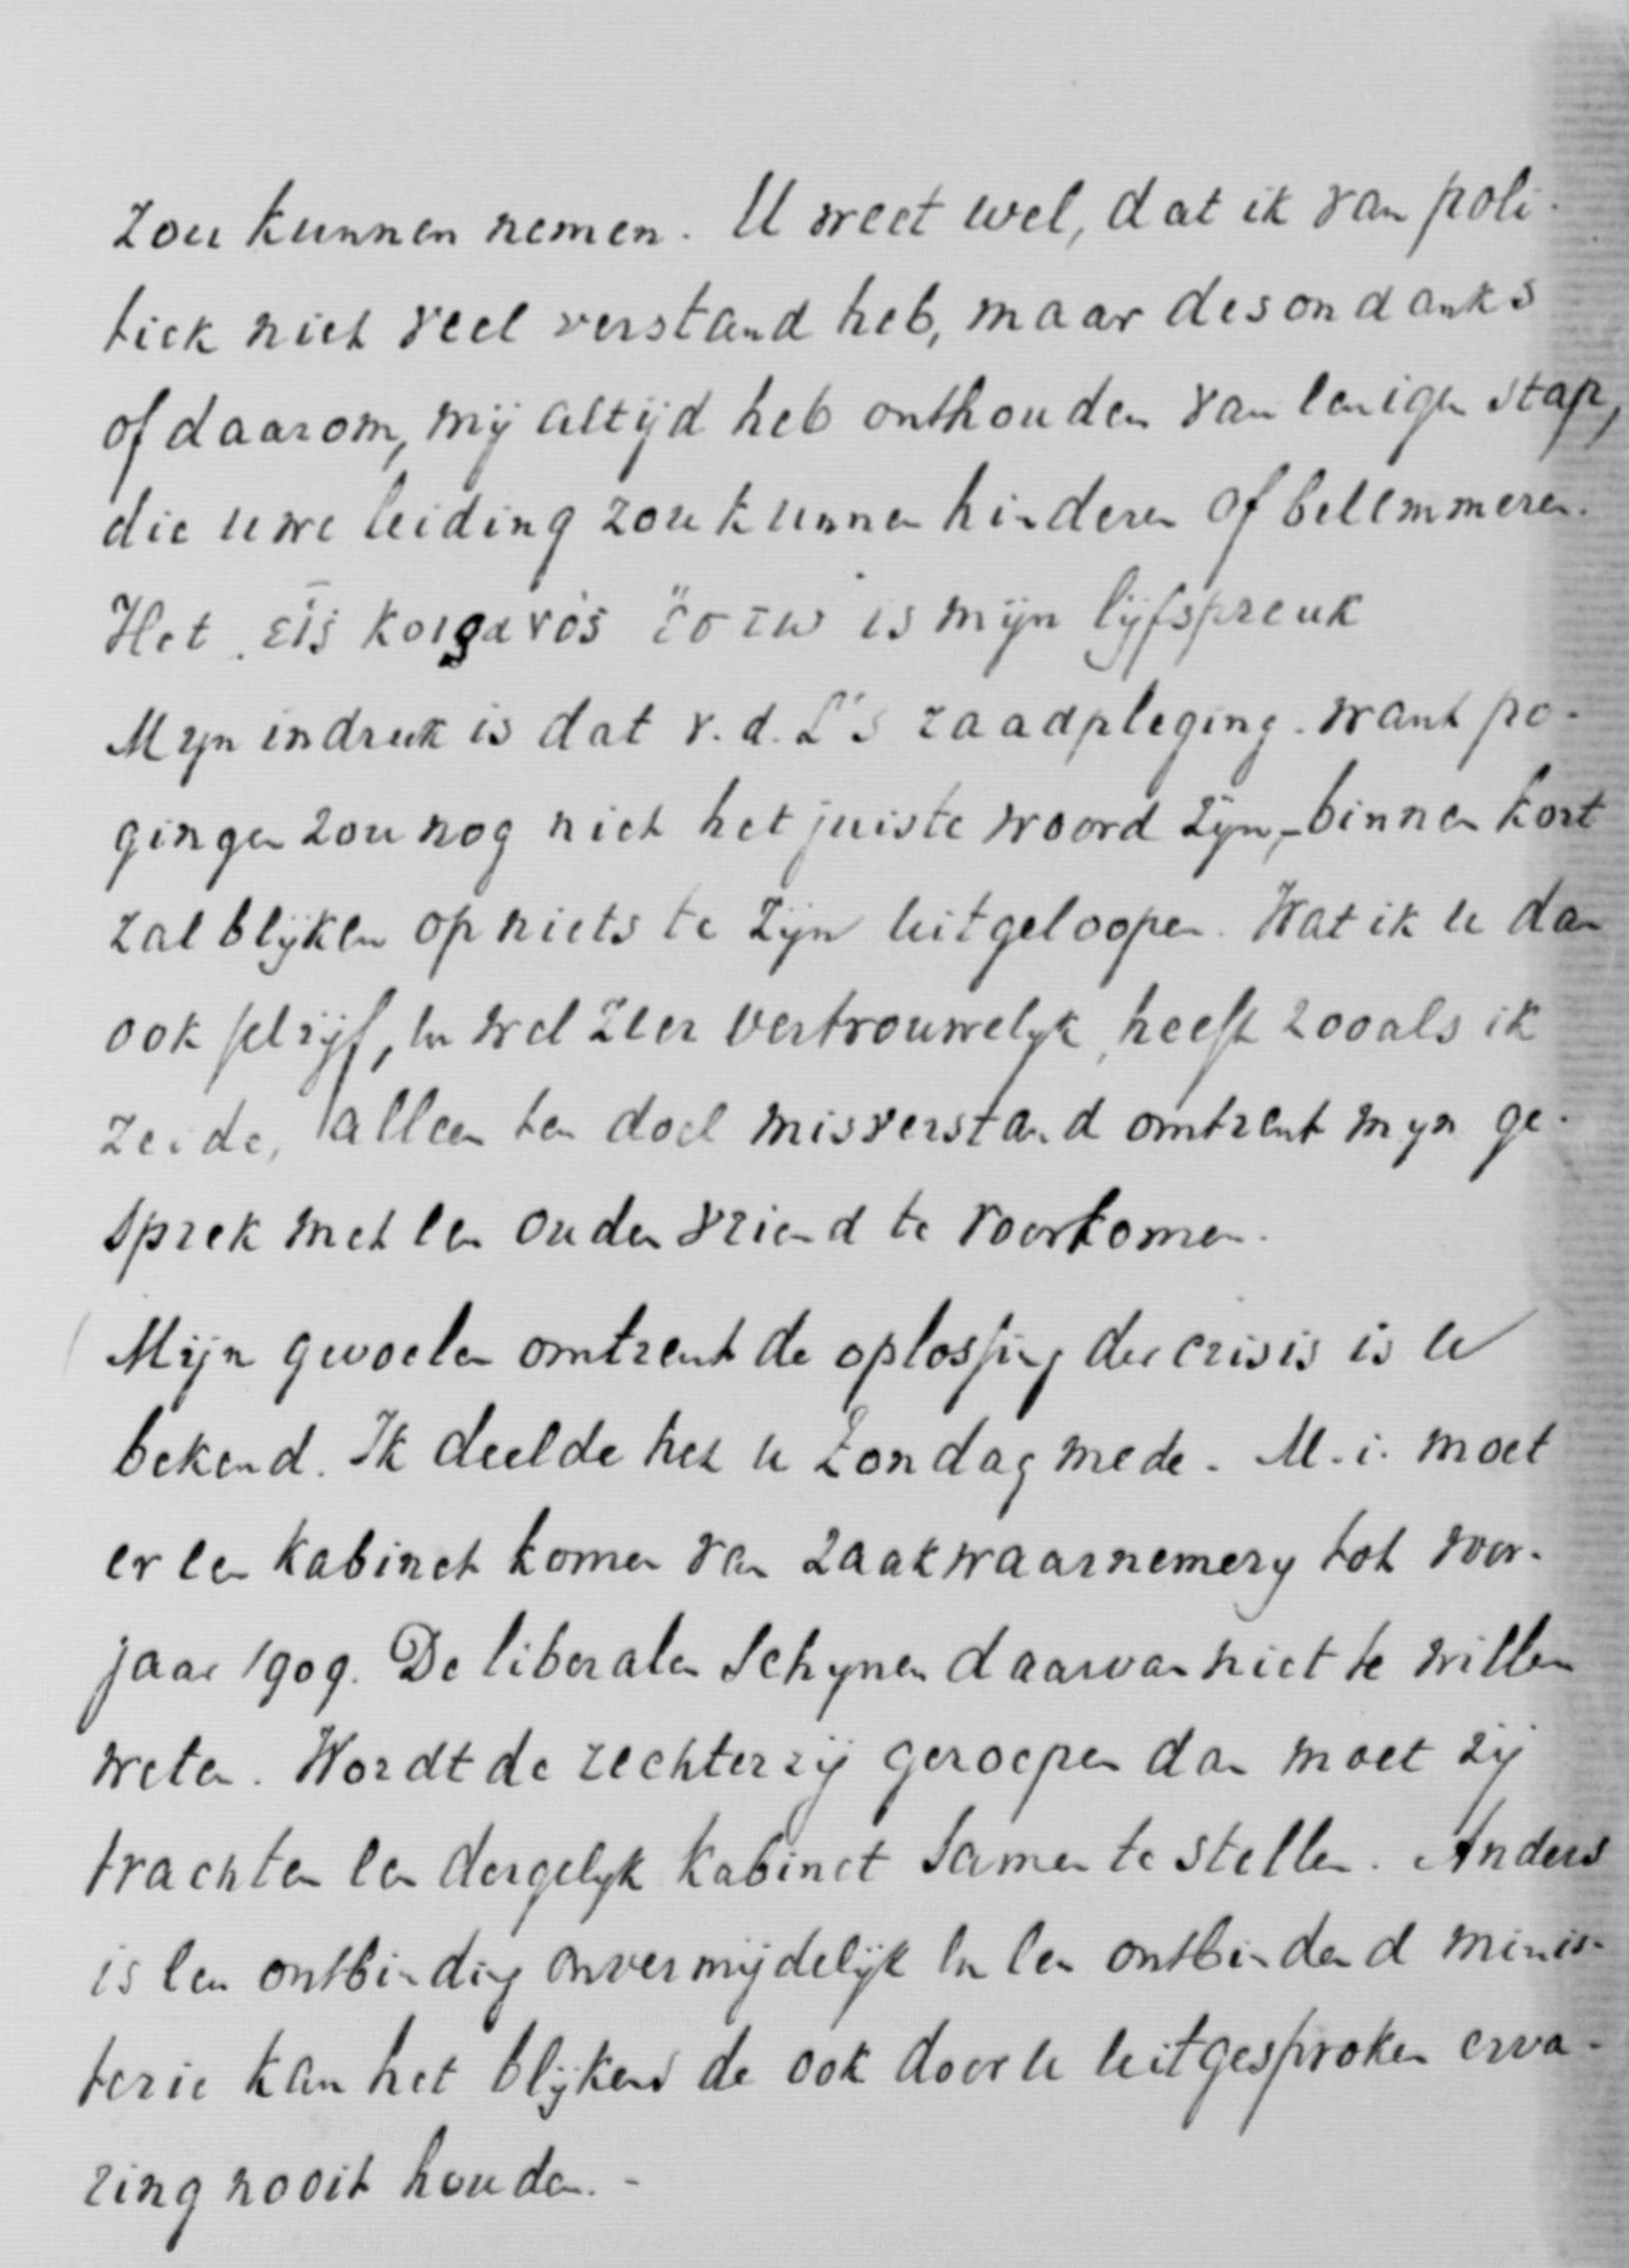 zou kunnen nemen. U weet wel, dat ik van poli-
tiek niet veel verstand heb, maar desondanks
of daarom, mij altijd heb onthouden van eenigen stap,
die uwe leiding zou kunnen hinderen of belemmeren.
Het εἷς κοίρανος ἔστω is mijn lijfspreuk
Mijn indruk is dat v.d. L's raadpleging - want po-
gingen zou nog niet het juiste woord zijn, - binnen kort
zal blijken op niets te zijn uitgeloopen. Wat ik u dan
ook schrijf, en wel zeer vertrouwelijk, heeft zooals ik
zeide, alleen ten doel misverstand omtrent mijn ge-
sprek met een ouden vriend te voorkomen.
Mijn gevoelen omtrent de oplossing der crisis is u
bekend. Ik deelde het u Zondag mede. M.i. moet
er een kabinet komen van zaakwaarneming tot voor-
jaar 1909. De liberalen schijnen daarvan niet te willen
weten. Wordt de rechterzij geroepen dan moet zij
trachten een dergelijk kabinet samen te stellen. Anders
is een ontbinding onvermijdelijk en een ontbindend minis-
terie kan het blijkens de ook door u uitgesproken erva-
ring nooit houden. -